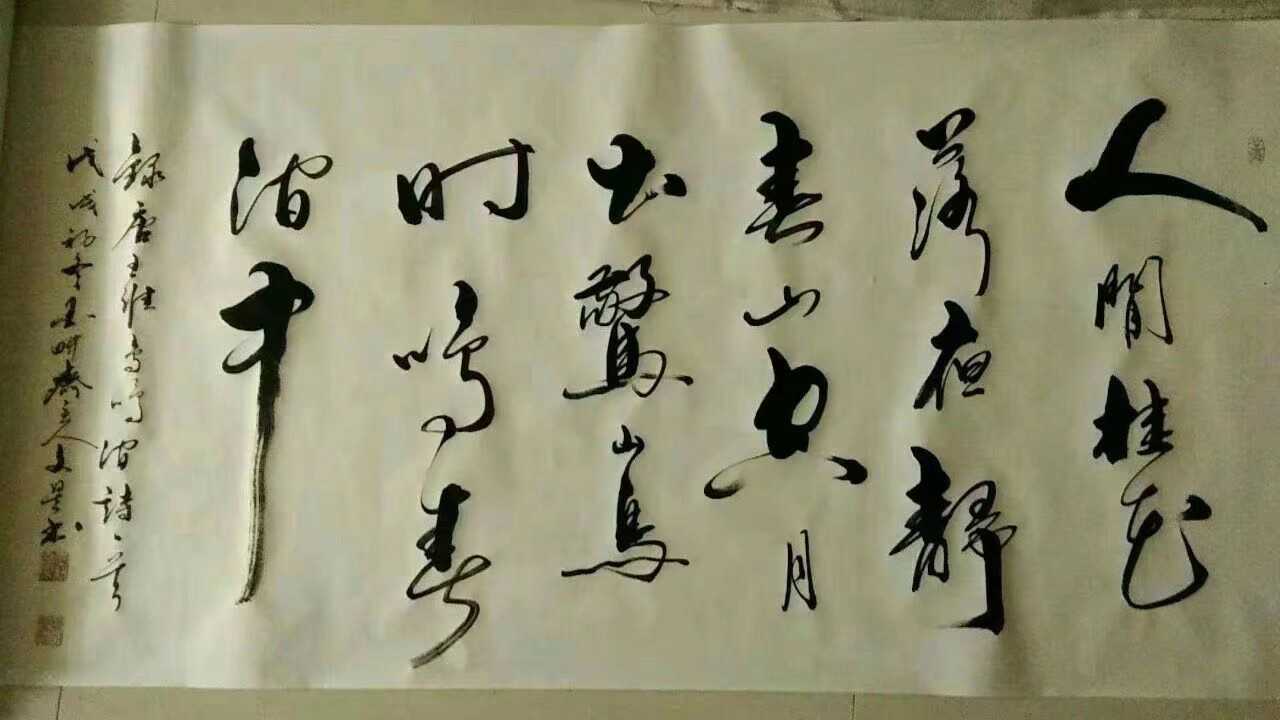 人閒桂花
落夜靜
春山空月
出驚山鳥
时鳴春
澗中
錄唐王維鳥鳴澗詩一首
戊戌初冬墨耕齋主人文景书